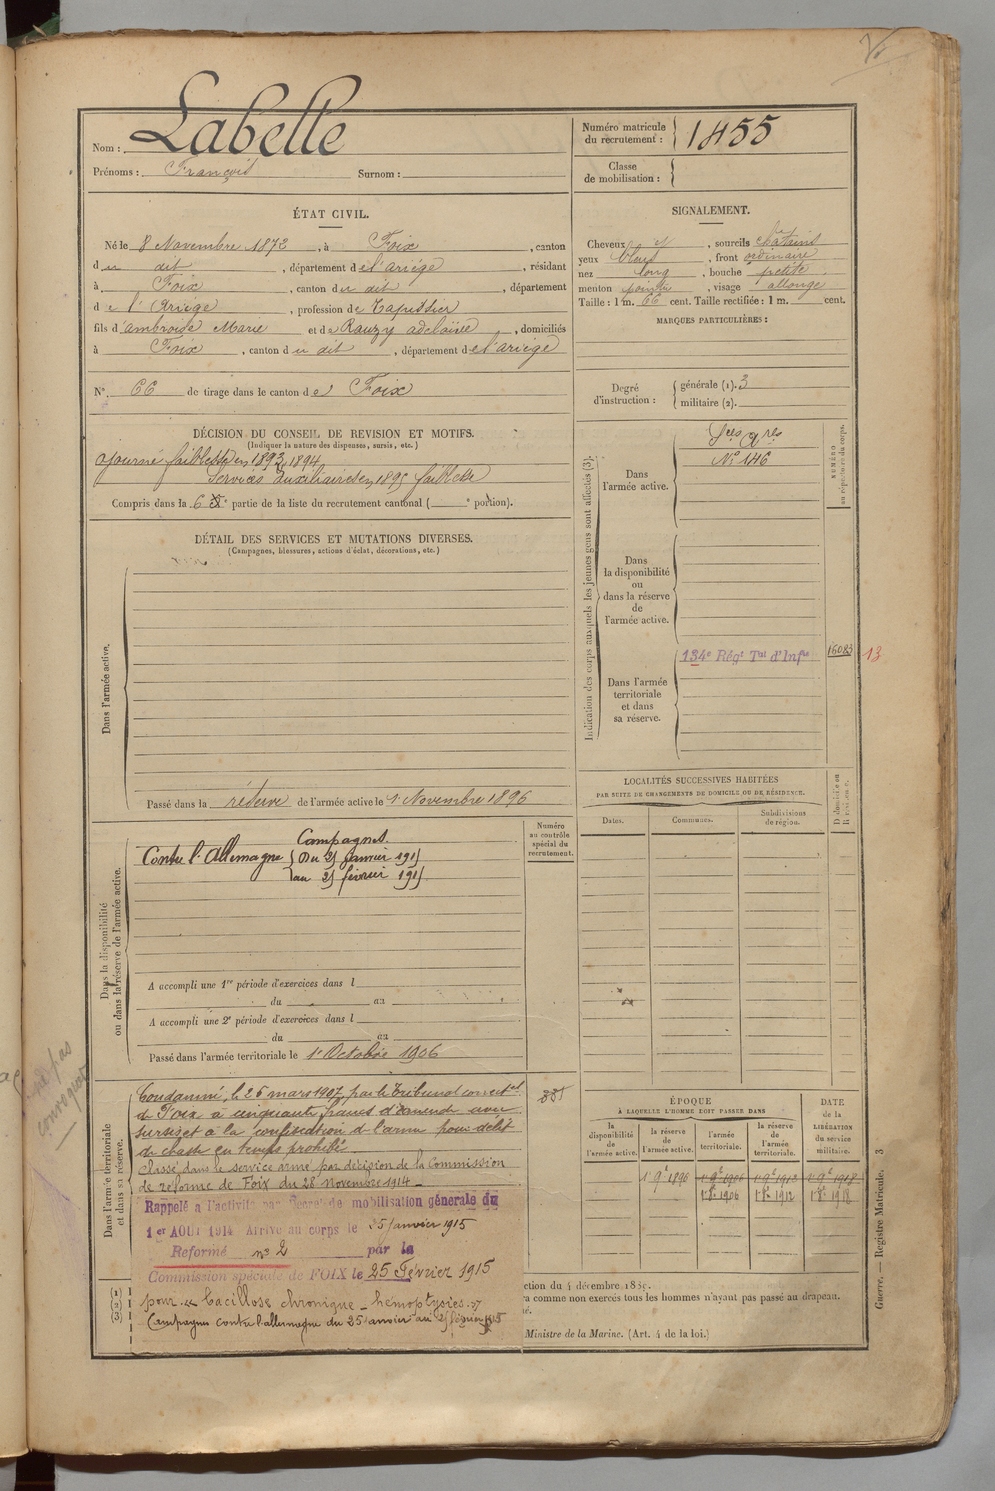 Nom : Labelle
Prénoms : François Surnom :
Numéro matricule du recrutement : 1455
Classe de mobilisation :
ÉTAT CIVIL.
Né le 8 Novembre 1873, à Foix, canton
du dit, département de l'ariége, résidant
à Foix, canton du dit, département
de l'Ariége, profession de Tapissier
fils d'ambroise Marie et de Rauzy adelaïde, domiciliés
à Foix, canton du dit, département de l'ariége
N° 66 de tirage dans le canton de Foix
SIGNALEMENT.
Cheveux et, sourcils chatains
yeux bleus, front ordinaire
nez long, bouche petite
menton pointu, visage allongé
Taille : 1 m. 66 cent. Taille rectifiée : 1 m. cent.
MARQUES PARTICULIÈRES :
Degré d'instruction : générale (1). 3
militaire (2).
DÉCISION DU CONSEIL DE REVISION ET MOTIFS.
(Indiquer la nature des dispenses, sursis, etc.)
ajourné faiblesse en 1893, 1894
Services auxiliaires en 1895 faiblesse
Compris dans la 6e partie de la liste du recrutement cantonal ( e portion).
DÉTAIL DES SERVICES ET MUTATIONS DIVERSES.
(Campagnes, blessures, actions d'éclat, décorations, etc.)
Dans l'armée active.
Passé dans la réserve de l'armée active le 1 Novembre 1896
Indication des corps auxquels les jeunes gens sont affectés (3).
NUMÉRO au répertoire du corps.
Dans l'armée active.
Sces Ares
N° 146
Dans la disponibilité ou dans la réserve de l'armée active.
Dans l'armée territoriale et dans sa réserve.
134e Régt Tal d'Infie
16083
13
LOCALITÉS SUCCESSIVES HABITÉES
PAR SUITE DE CHANGEMENTS DE DOMICILE OU DE RÉSIDENCE.
Dates.
Communes.
Subdivisions de région.
D domicile ou R résidence.
Dans la disponibilité ou dans la réserve de l'armée active.
Numéro au contrôle spécial du recrutement.
Campagnes.
Contre l'Allemagne { Du 25 janvier 1915
au 25 février 1915
A accompli une 1re période d'exercices dans l
du au
A accompli une 2e période d'exercices dans l
du au
Passé dans l'armée territoriale le 1er Octobre 1906
pas convoqué
Dans l'armée territoriale et dans sa réserve.
Condamné, le 26 mars 1907, par le Tribunal correctel
de Foix à cinquante francs d'amende avec
sursis et à la confiscation de l'arme pour délit
de chasse en temps prohibé
Classé dans le service armé par décision de la Commission
de réforme de Foix du 28 Novembre 1914
Rappelé à l'activité par Décret de mobilisation générale du
1er AOUT 1914 Arrivé au corps le 25 Janvier 1915
Reformé n° 2 par la
Commission spéciale de FOIX le 25 Février 1915
pour "Bacillose chronique - hémoptysies."
Campagnes contre l'allemagne du 25 janvier au 25 février 1915
ÉPOQUE
À LAQUELLE L'HOMME DOIT PASSER DANS
la disponibilité de l'armée active.
la réserve de l'armée active.
l'armée territoriale.
la réserve de l'armée territoriale.
DATE de la LIBÉRATION du service militaire.
1er 9e 1896 1er 9e 1906 1er 9e 1912 1er 9e 1918
1er 8e 1906 1er 8e 1912 1er 8e 1918
(1)
(2)
(3)
ction du 4 décembre 188
a comme non exercés tous les hommes n'ayant pas passé au drapeau.
Ministre de la Marine. (Art. 4 de la loi.)
Guerre. — Registre Matricule. 3